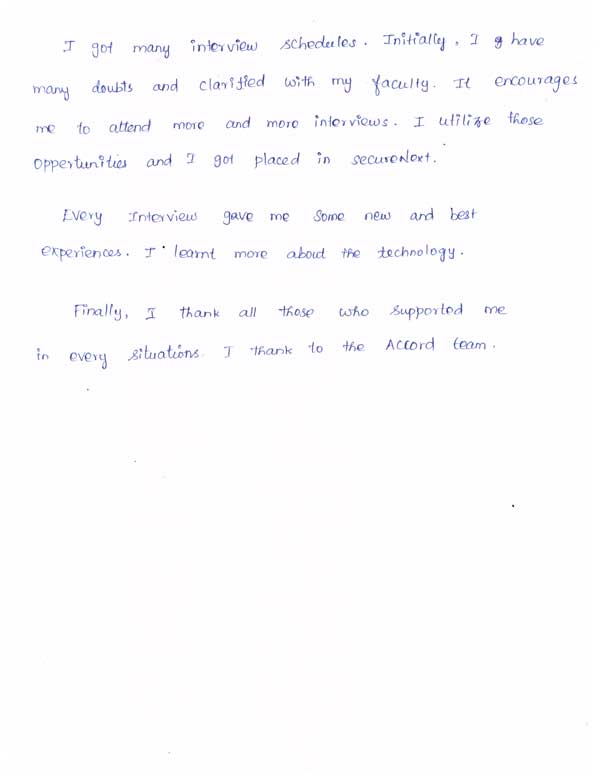 I got many interview schedules. Initially, I g have
many doubts and clarified with my faculty. It encourages
me to attend more and more interviews. I utilize those
oppertunities and I got placed in secureNext.
Every Interview gave me some new and best
experiences. I learnt more about the technology.
Finally, I thank all those who supported me
in every situations. I thank to the Accord team.